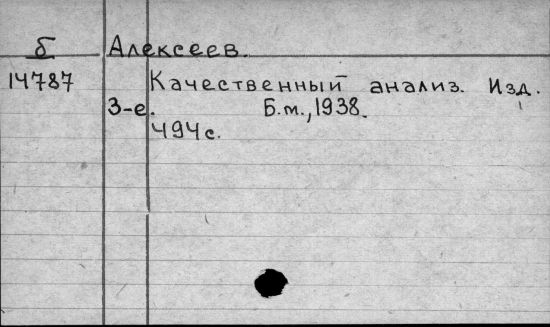 б Алексеев.
14787 Качественный анализ. Изд.
3-е. Б.м., 1938.
494 с.